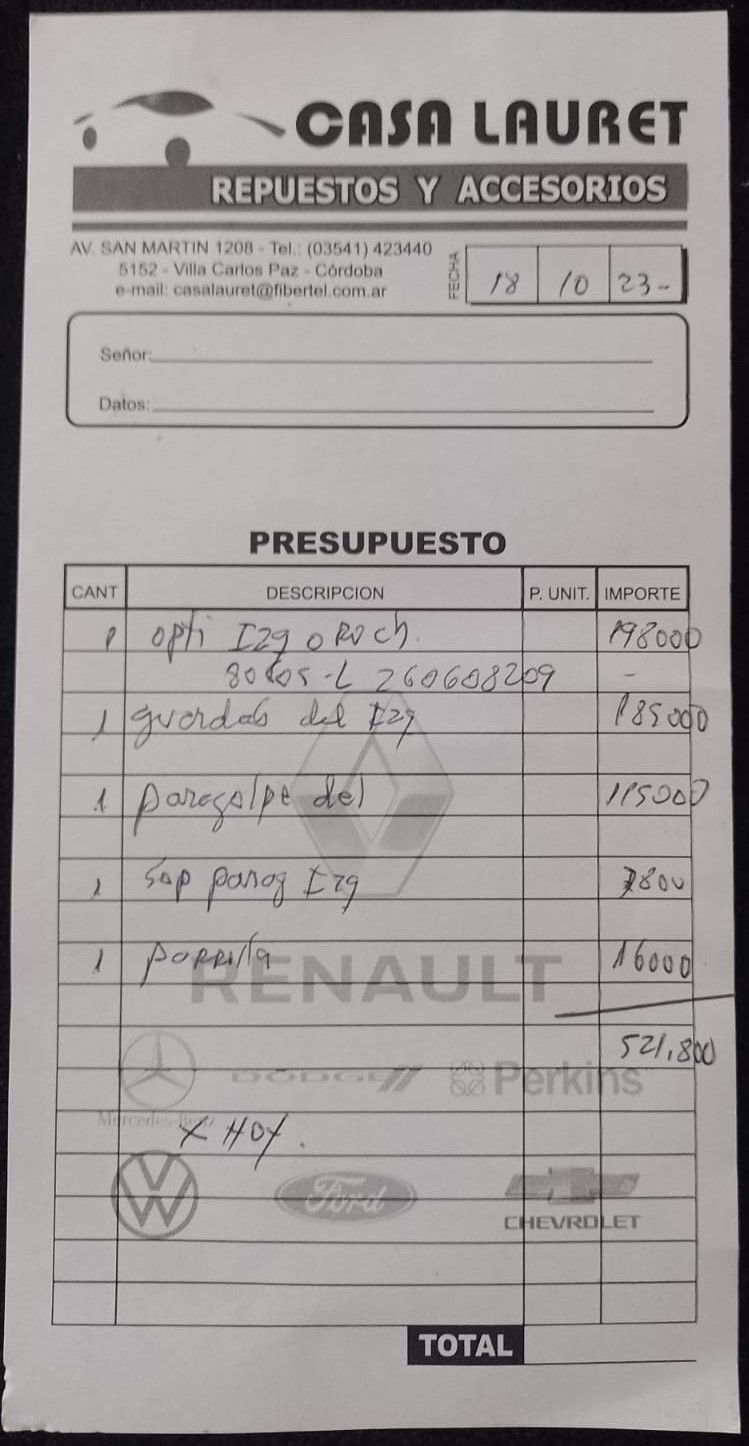 CASA LAURET
REPUESTOS Y ACCESORIOS
AV. SAN MARTIN 1208 - Tel.: (03541) 423440
5152 - Villa Carlos Paz - Córdoba
e-mail: casalauret@fibertel.com.ar
FECHA 18 10 23-
Señor:
Datos:
PRESUPUESTO
CANT DESCRIPCION P. UNIT. IMPORTE
1 opti Izq oroch. 198000
260608209 -
1 guardab del Izq 185000
1 paragolpe del 115000
1 sop parag Izq 7800
1 parrilla 16000
RENAULT
521,800
DODGE Perkins
Mercedes-Benz
X HOY.
VW Ford
CHEVROLET
TOTAL